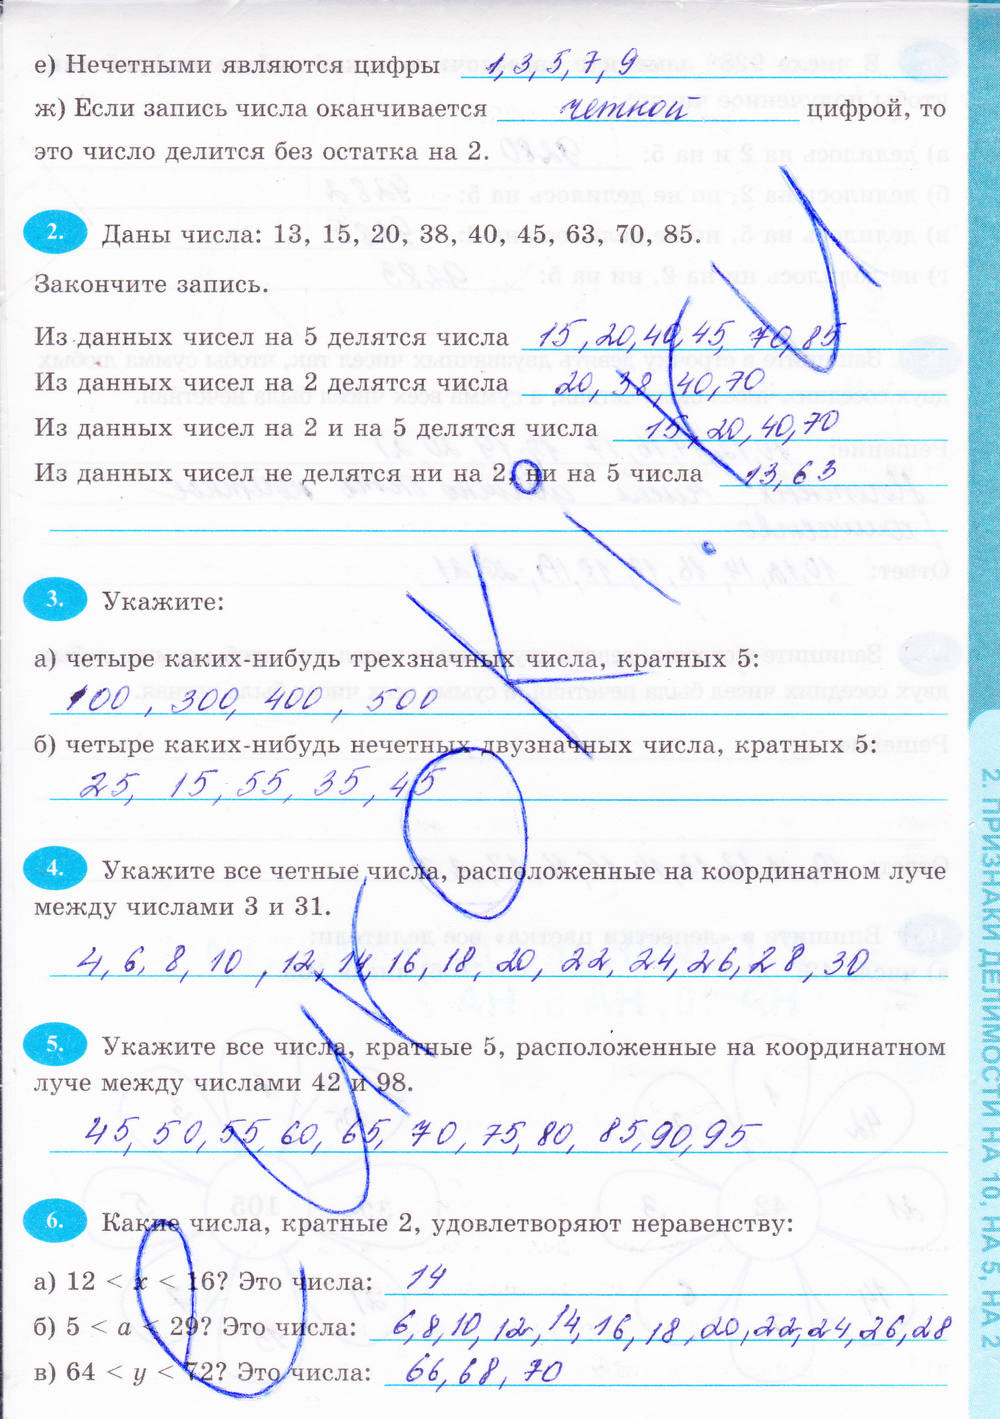 е) Нечетными являются цифры 1, 3, 5, 7, 9
ж) Если запись числа оканчивается четной цифрой, то
это число делится без остатка на 2.
2. Даны числа: 13, 15, 20, 38, 40, 45, 63, 70, 85.
Закончите запись.
Из данных чисел на 5 делятся числа 15, 20, 40, 45, 70, 85
Из данных чисел на 2 делятся числа 20, 38, 40, 70
Из данных чисел на 2 и на 5 делятся числа 15, 20, 40, 70
Из данных чисел не делятся ни на 2, ни на 5 числа 13, 63
3. Укажите:
а) четыре каких-нибудь трехзначных числа, кратных 5:
100, 300, 400, 500
б) четыре каких-нибудь нечетных двузначных числа, кратных 5:
25, 15, 55, 35, 45
4. Укажите все четные числа, расположенные на координатном луче
между числами 3 и 31.
4, 6, 8, 10, 12, 14, 16, 18, 20, 22, 24, 26, 28, 30
5. Укажите все числа, кратные 5, расположенные на координатном
луче между числами 42 и 98.
45, 50, 55, 60, 65, 70, 75, 80, 85, 90, 95
6. Какие числа, кратные 2, удовлетворяют неравенству:
а) 12 < x < 16? Это числа: 14
б) 5 < a < 29? Это числа: 6, 8, 10, 12, 14, 16, 18, 20, 22, 24, 26, 28
в) 64 < y < 72? Это числа: 66, 68, 70
2. ПРИЗНАКИ ДЕЛИМОСТИ НА 10, НА 5, НА 2